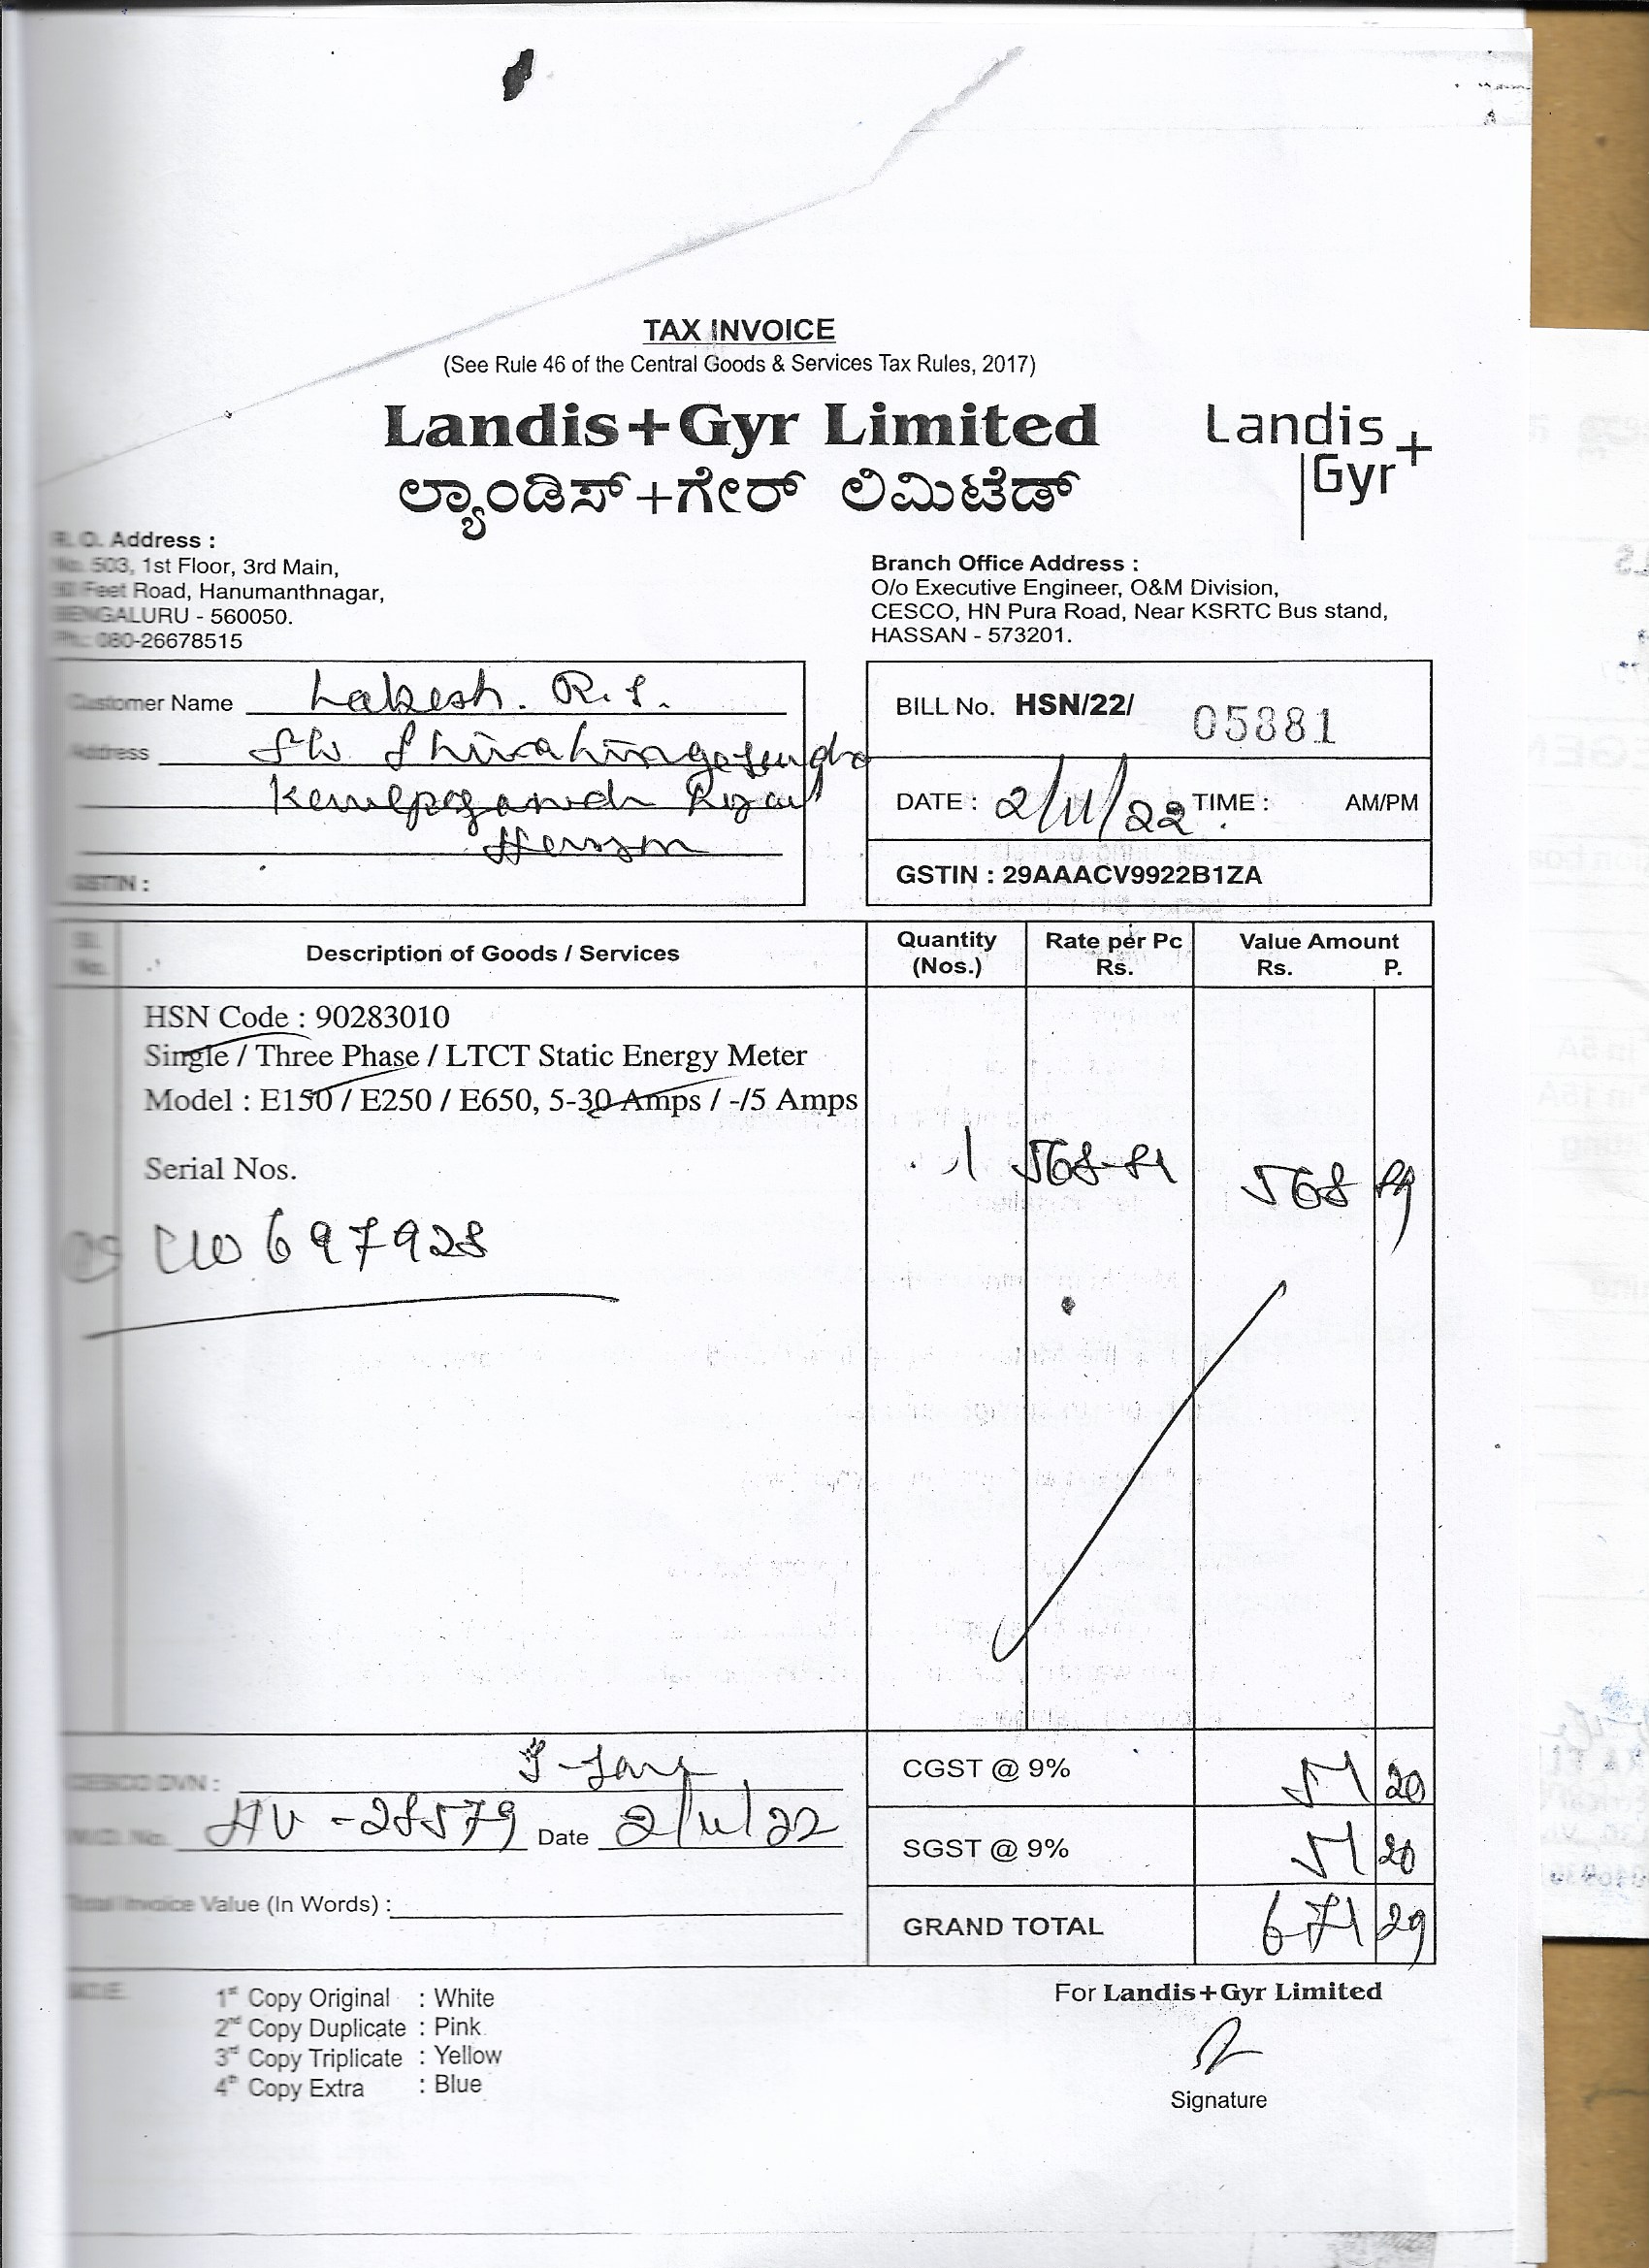 TAX INVOICE
(See Rule 46 of the Central Goods & Services Tax Rules, 2017)
Landis+Gyr Limited
ಲ್ಯಾಂಡಿಸ್+ಗೇರ್ ಲಿಮಿಟೆಡ್
Landis
Gyr+
R. O. Address :
No. 503, 1st Floor, 3rd Main,
Feet Road, Hanumanthnagar,
BENGALURU - 560050.
Ph.: 080-26678515
Branch Office Address :
O/o Executive Engineer, O&M Division,
CESCO, HN Pura Road, Near KSRTC Bus stand,
HASSAN - 573201.
Customer Name Lakesh. R.S.
Address S/o
GSTIN :
BILL No. HSN/22/ 05881
DATE : 2/11/22 TIME : AM/PM
GSTIN : 29AAACV9922B1ZA
Sl. No. Description of Goods / Services Quantity (Nos.) Rate per Pc Rs. Value Amount Rs. P.
HSN Code : 90283010
Single / Three Phase / LTCT Static Energy Meter
Model : E150 / E250 / E650, 5-30 Amps / -/5 Amps
Serial Nos. 1 568-89 568 89
697928
CESCO DVN :
CGST @ 9% 51 20
M.O. No. HV -28579 Date 2/11/22
SGST @ 9% 51 20
Total Invoice Value (In Words) :
GRAND TOTAL 671 29
NOTE:
1st Copy Original : White
2nd Copy Duplicate : Pink
3rd Copy Triplicate : Yellow
4th Copy Extra : Blue
For Landis+Gyr Limited
Signature